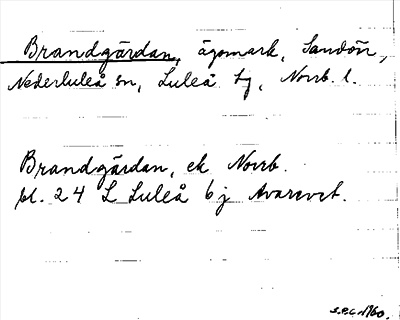 Brandgärdan, ägomark, Sandön,
Nederluleå sn, Luleå tg, Norrb. l.
Brandgärdan, ek Norrb.
bl. 24 L Luleå 6j Avarevet.
1960.